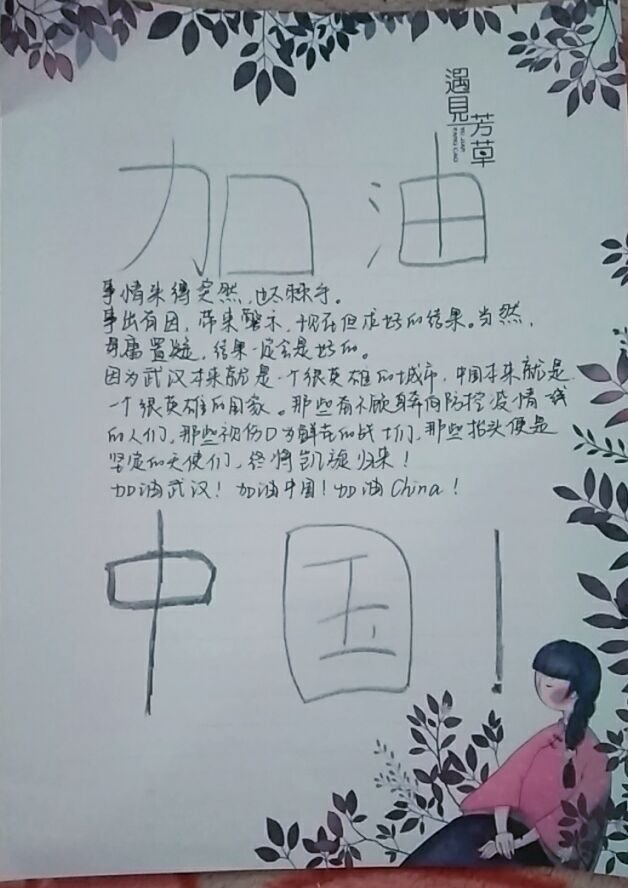 遇見芳草
YU JIAN
FANG CAO
加油
事情来得突然,也不棘手。
事出有因,带来警示,现在但求好的结果。当然,
毋庸置疑,结果一定会是好的。
因为武汉本来就是一个很英雄的城市,中国本来就是
一个很英雄的国家。那些奋不顾身奔向防控疫情一线
的人们,那些视伤口为鲜花的战士们,那些抬头便是
坚定的天使们,终将凯旋归来!
加油武汉!加油中国!加油China!
中国!